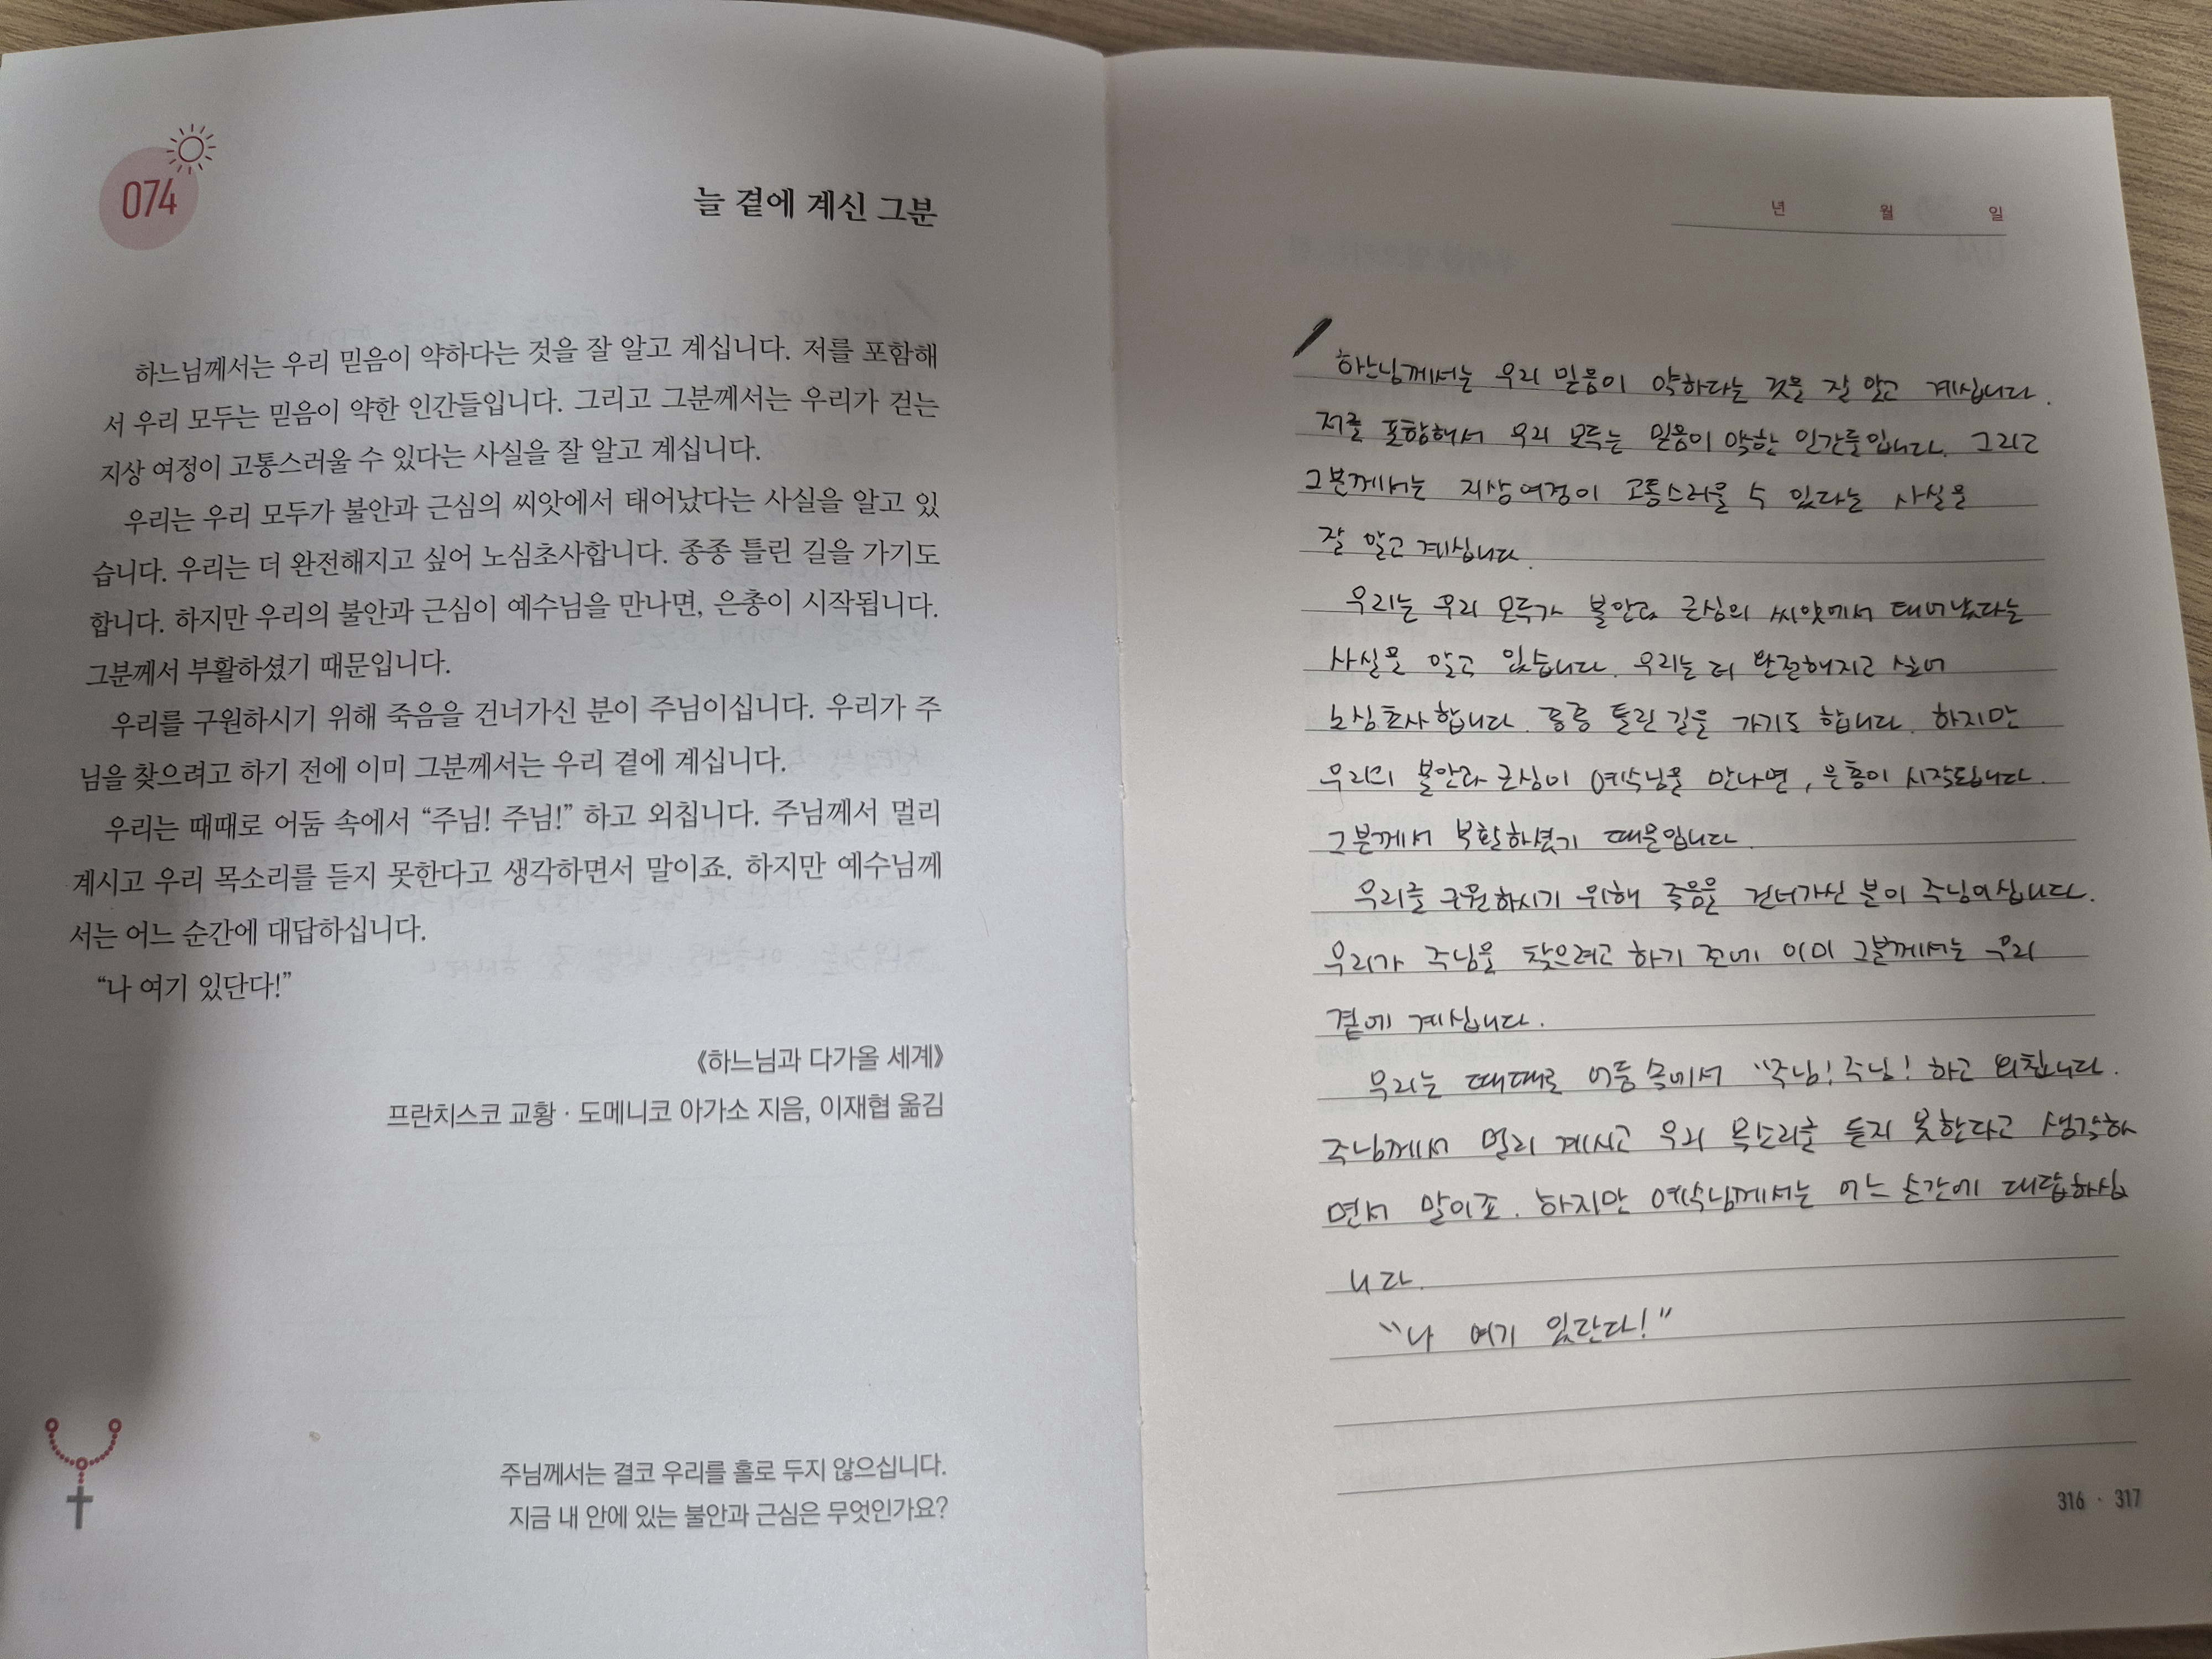 074
늘 곁에 계신 그분
하느님께서는 우리 믿음이 약하다는 것을 잘 알고 계십니다. 저를 포함해
서 우리 모두는 믿음이 약한 인간들입니다. 그리고 그분께서는 우리가 걷는
지상 여정이 고통스러울 수 있다는 사실을 잘 알고 계십니다.
우리는 우리 모두가 불안과 근심의 씨앗에서 태어났다는 사실을 알고 있
습니다. 우리는 더 완전해지고 싶어 노심초사합니다. 종종 틀린 길을 가기도
합니다. 하지만 우리의 불안과 근심이 예수님을 만나면, 은총이 시작됩니다.
그분께서 부활하셨기 때문입니다.
우리를 구원하시기 위해 죽음을 건너가신 분이 주님이십니다. 우리가 주
님을 찾으려고 하기 전에 이미 그분께서는 우리 곁에 계십니다.
우리는 때때로 어둠 속에서 “주님! 주님!” 하고 외칩니다. 주님께서 멀리
계시고 우리 목소리를 듣지 못한다고 생각하면서 말이죠. 하지만 예수님께
서는 어느 순간에 대답하십니다.
“나 여기 있단다!”
《하느님과 다가올 세계》
프란치스코 교황 · 도메니코 아가소 지음, 이재협 옮김
주님께서는 결코 우리를 홀로 두지 않으십니다.
지금 내 안에 있는 불안과 근심은 무엇인가요?
년 월 일
하느님께서는 우리 믿음이 약하다는 것을 잘 알고 계십니다.
저를 포함해서 우리 모두는 믿음이 약한 인간들입니다. 그리고
그분께서는 지상여정이 고통스러울 수 있다는 사실을
잘 알고 계십니다.
우리는 우리 모두가 불안과 근심의 씨앗에서 태어났다는
사실을 알고 있습니다. 우리는 더 완전해지고 싶어
노심초사합니다. 종종 틀린 길을 가기도 합니다. 하지만
우리의 불안과 근심이 예수님을 만나면, 은총이 시작됩니다.
그분께서 부활하셨기 때문입니다.
우리를 구원하시기 위해 죽음을 건너가신 분이 주님이십니다.
우리가 주님을 찾으려고 하기 전에 이미 그분께서는 우리
곁에 계십니다.
우리는 때때로 어둠 속에서 “주님! 주님! 하고 외칩니다.
주님께서 멀리 계시고 우리 목소리를 듣지 못한다고 생각하
면서 말이죠. 하지만 예수님께서는 어느 순간에 대답하십
니다.
“나 여기 있단다!”
316 · 317